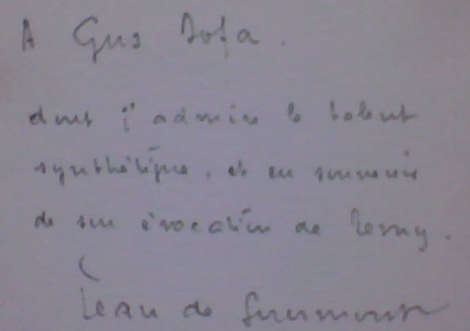 A Gus Bofa.
dont j'admire le talent
synthétique, et en souvenir
de son évocation de Remy.
Jean de Gourmont